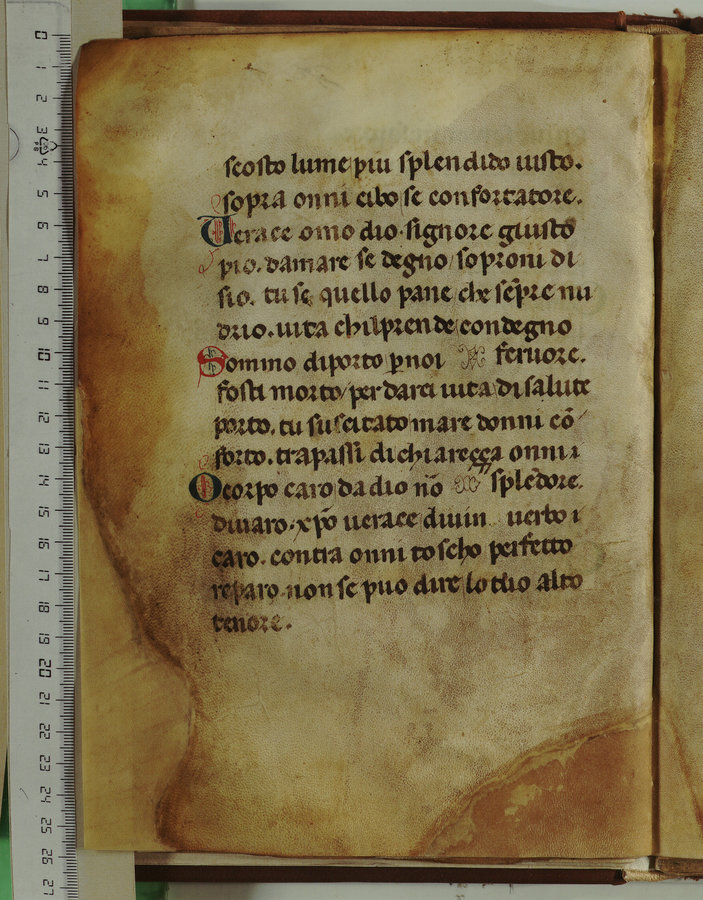 scosto lume piu splendido uisto.
sopra onni cibo se confortatore.
Uerace omo dio. signore giusto
pio. damare se degno soproni di
sio. tu se quello pane che sēpre nu
drio. uita chilprende condegno
Sommo diporto p noi feruore.
fosti morto per darci uita di salute
porto. tu suscitato mare donni cō
forto. trapassi di chiareçça onni
O corpo caro da dio nō splēdore.
diuaro. xpo uerace diuin uerbo i
caro. contra onni toscho perfetto
reparo. non se puo dire lo tuo alto
tenore.
0 1 2 3 4 5 6 7 8 9 10 11 12 13 14 15 16 17 18 19 20 21 22 23 24 25 26 27